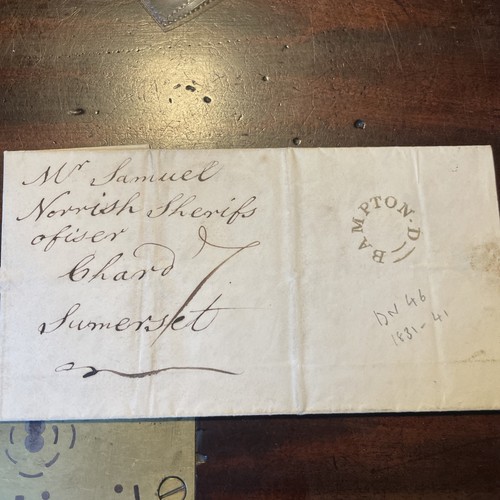 Mr Samuel
Norrish Sherifs
ofiser
Chard
Sumerset
7
BAMPTON·D
DN 46
1831-41